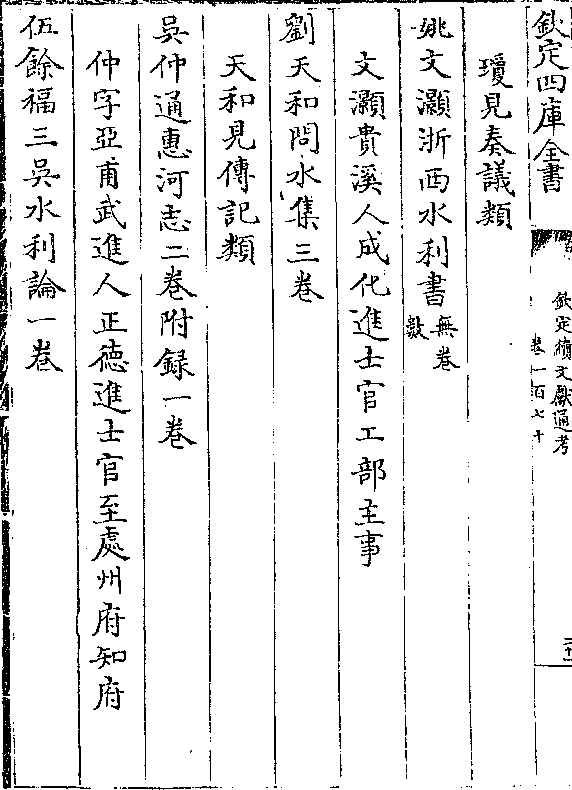 欽定四庫全書
欽定續文獻通考
卷一百七十
瓊見奏議類
姚文灝浙西水利書無卷數
文灝貴溪人成化進士官工部主事
劉天和問水集三卷
天和見傳記類
吳仲通惠河志二卷附録一卷
仲字亞甫武進人正德進士官至處州府知府
伍餘福三吳水利論一卷